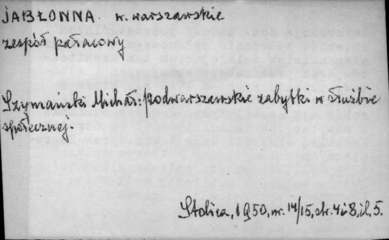 JABŁONNA w. warszawskie
zespół pałacowy
Szymański Michał: podwarszawskie zabytki w służbie
społecznej.
Stolica, 1950, nr. 14/15, str. 4 i 8, il. 5.